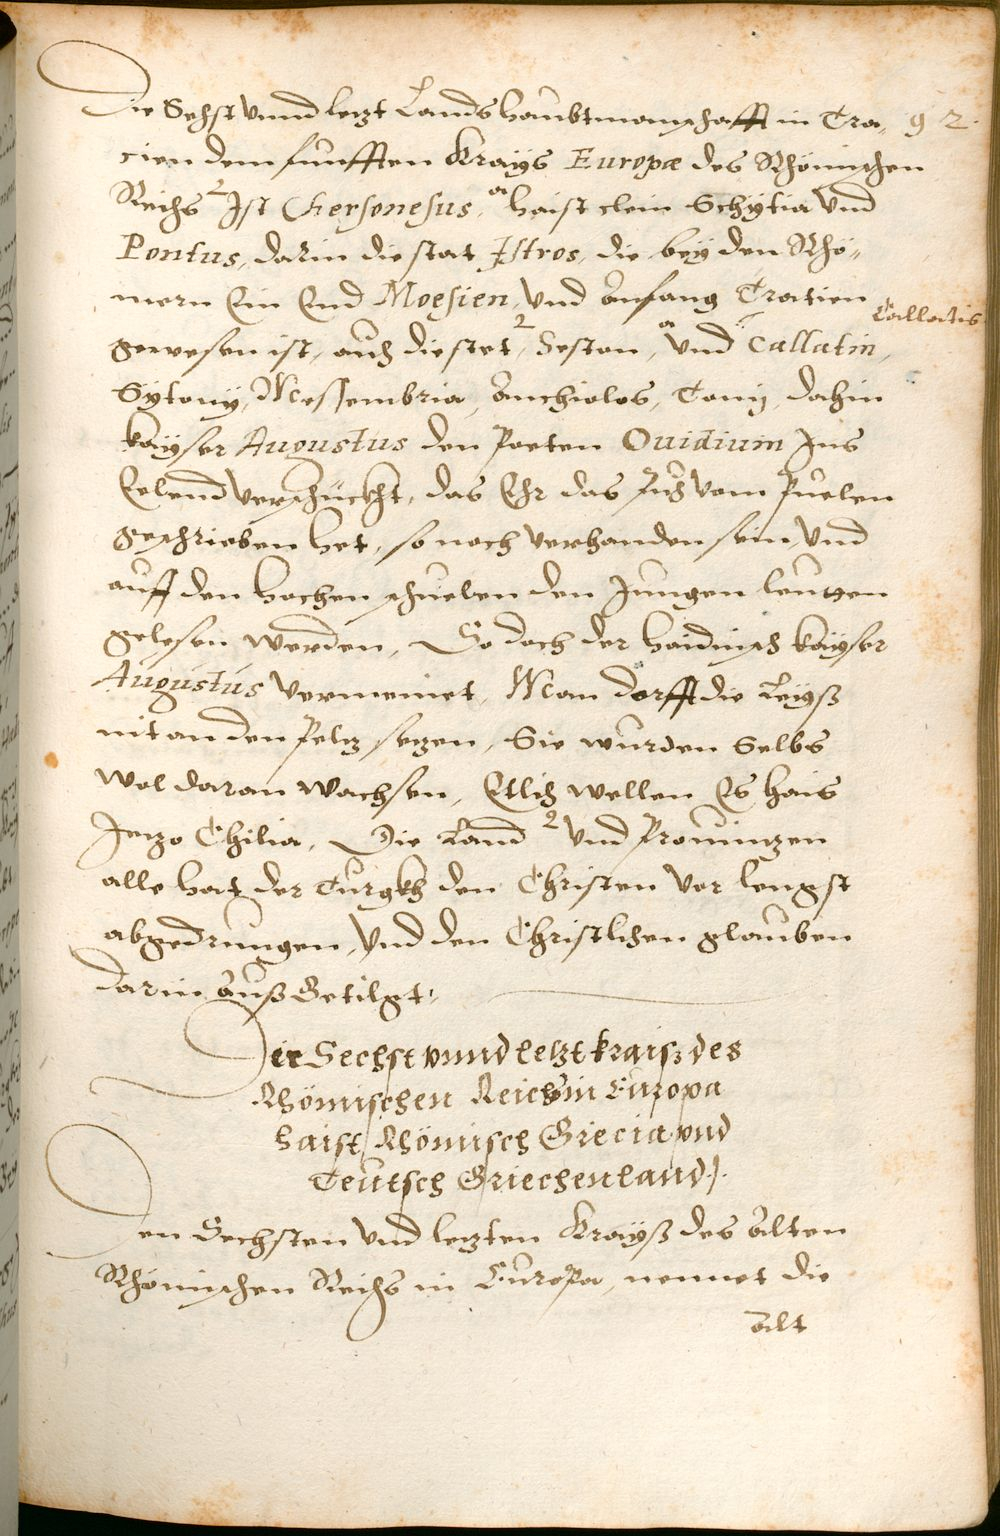 92.
Die Sechst vnnd letzt Landshaubtmanschafft in Tra-
cien dem funfften Krays Europæ des Rhömischen
Reichs Ist Chersonesus, haist clein Schÿtia vnd
Pontus, darin die stat Istros, die beÿ den Rhö-
mern Ein End Moesien, vnd Anfang Tracien
Callatis
gewesen ist, auch die stet, Seston, vnd Callatin,
Sytonÿ, Messembria, Anchialos, Tomj, dahin
kaÿser Augustus den Poeten Ouidium Ins
Eelend verschückht, das Ehr das puch vom puelen
geschrieben het, so noch verhanden sein, vnd
auff den hochen schuelen den Jungen leutten
gelesen werden, So doch der haidnisch kaÿser
Augustus vermeinet, Man dorfft die Leÿß
nit an den peltz setzen, Sie wurden Selbs
wol daran wachsen, Etlich wellen Es hais
Jetzo Chilia, Die Land vnd Prouintzen
alle hat der Turgkh den Christen vor lengst
abgedrungen, vnd den Christlichen glauben
darin auß Getilgt,
Der Sechst vnnd letzt kraisz des
Rhömischen Reichs in Europa
haist Rhömisch Grecia vnd
Teutsch Griechenland).
Den Sechsten vnd letzten Kraÿß des Alten
Rhömischen Reichs in Europa, nennet die
Alt